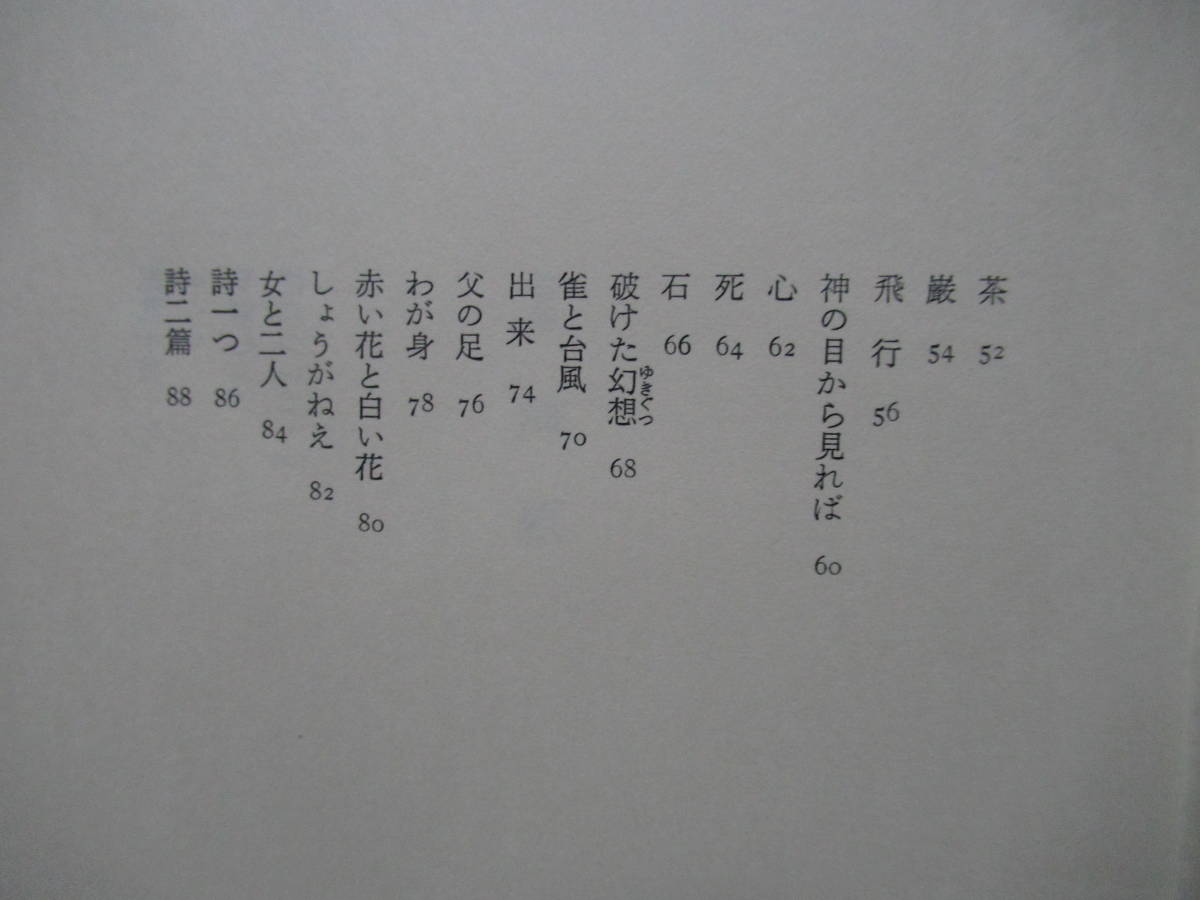 茶 52
巌 54
飛行 56
神の目から見れば 60
心 62
死 64
石 66
破けた幻想 68
ゆきぐつ
雀と台風 70
出来 74
父の足 76
わが身 78
赤い花と白い花 80
しょうがねえ 82
女と二人 84
詩一つ 86
詩二篇 88